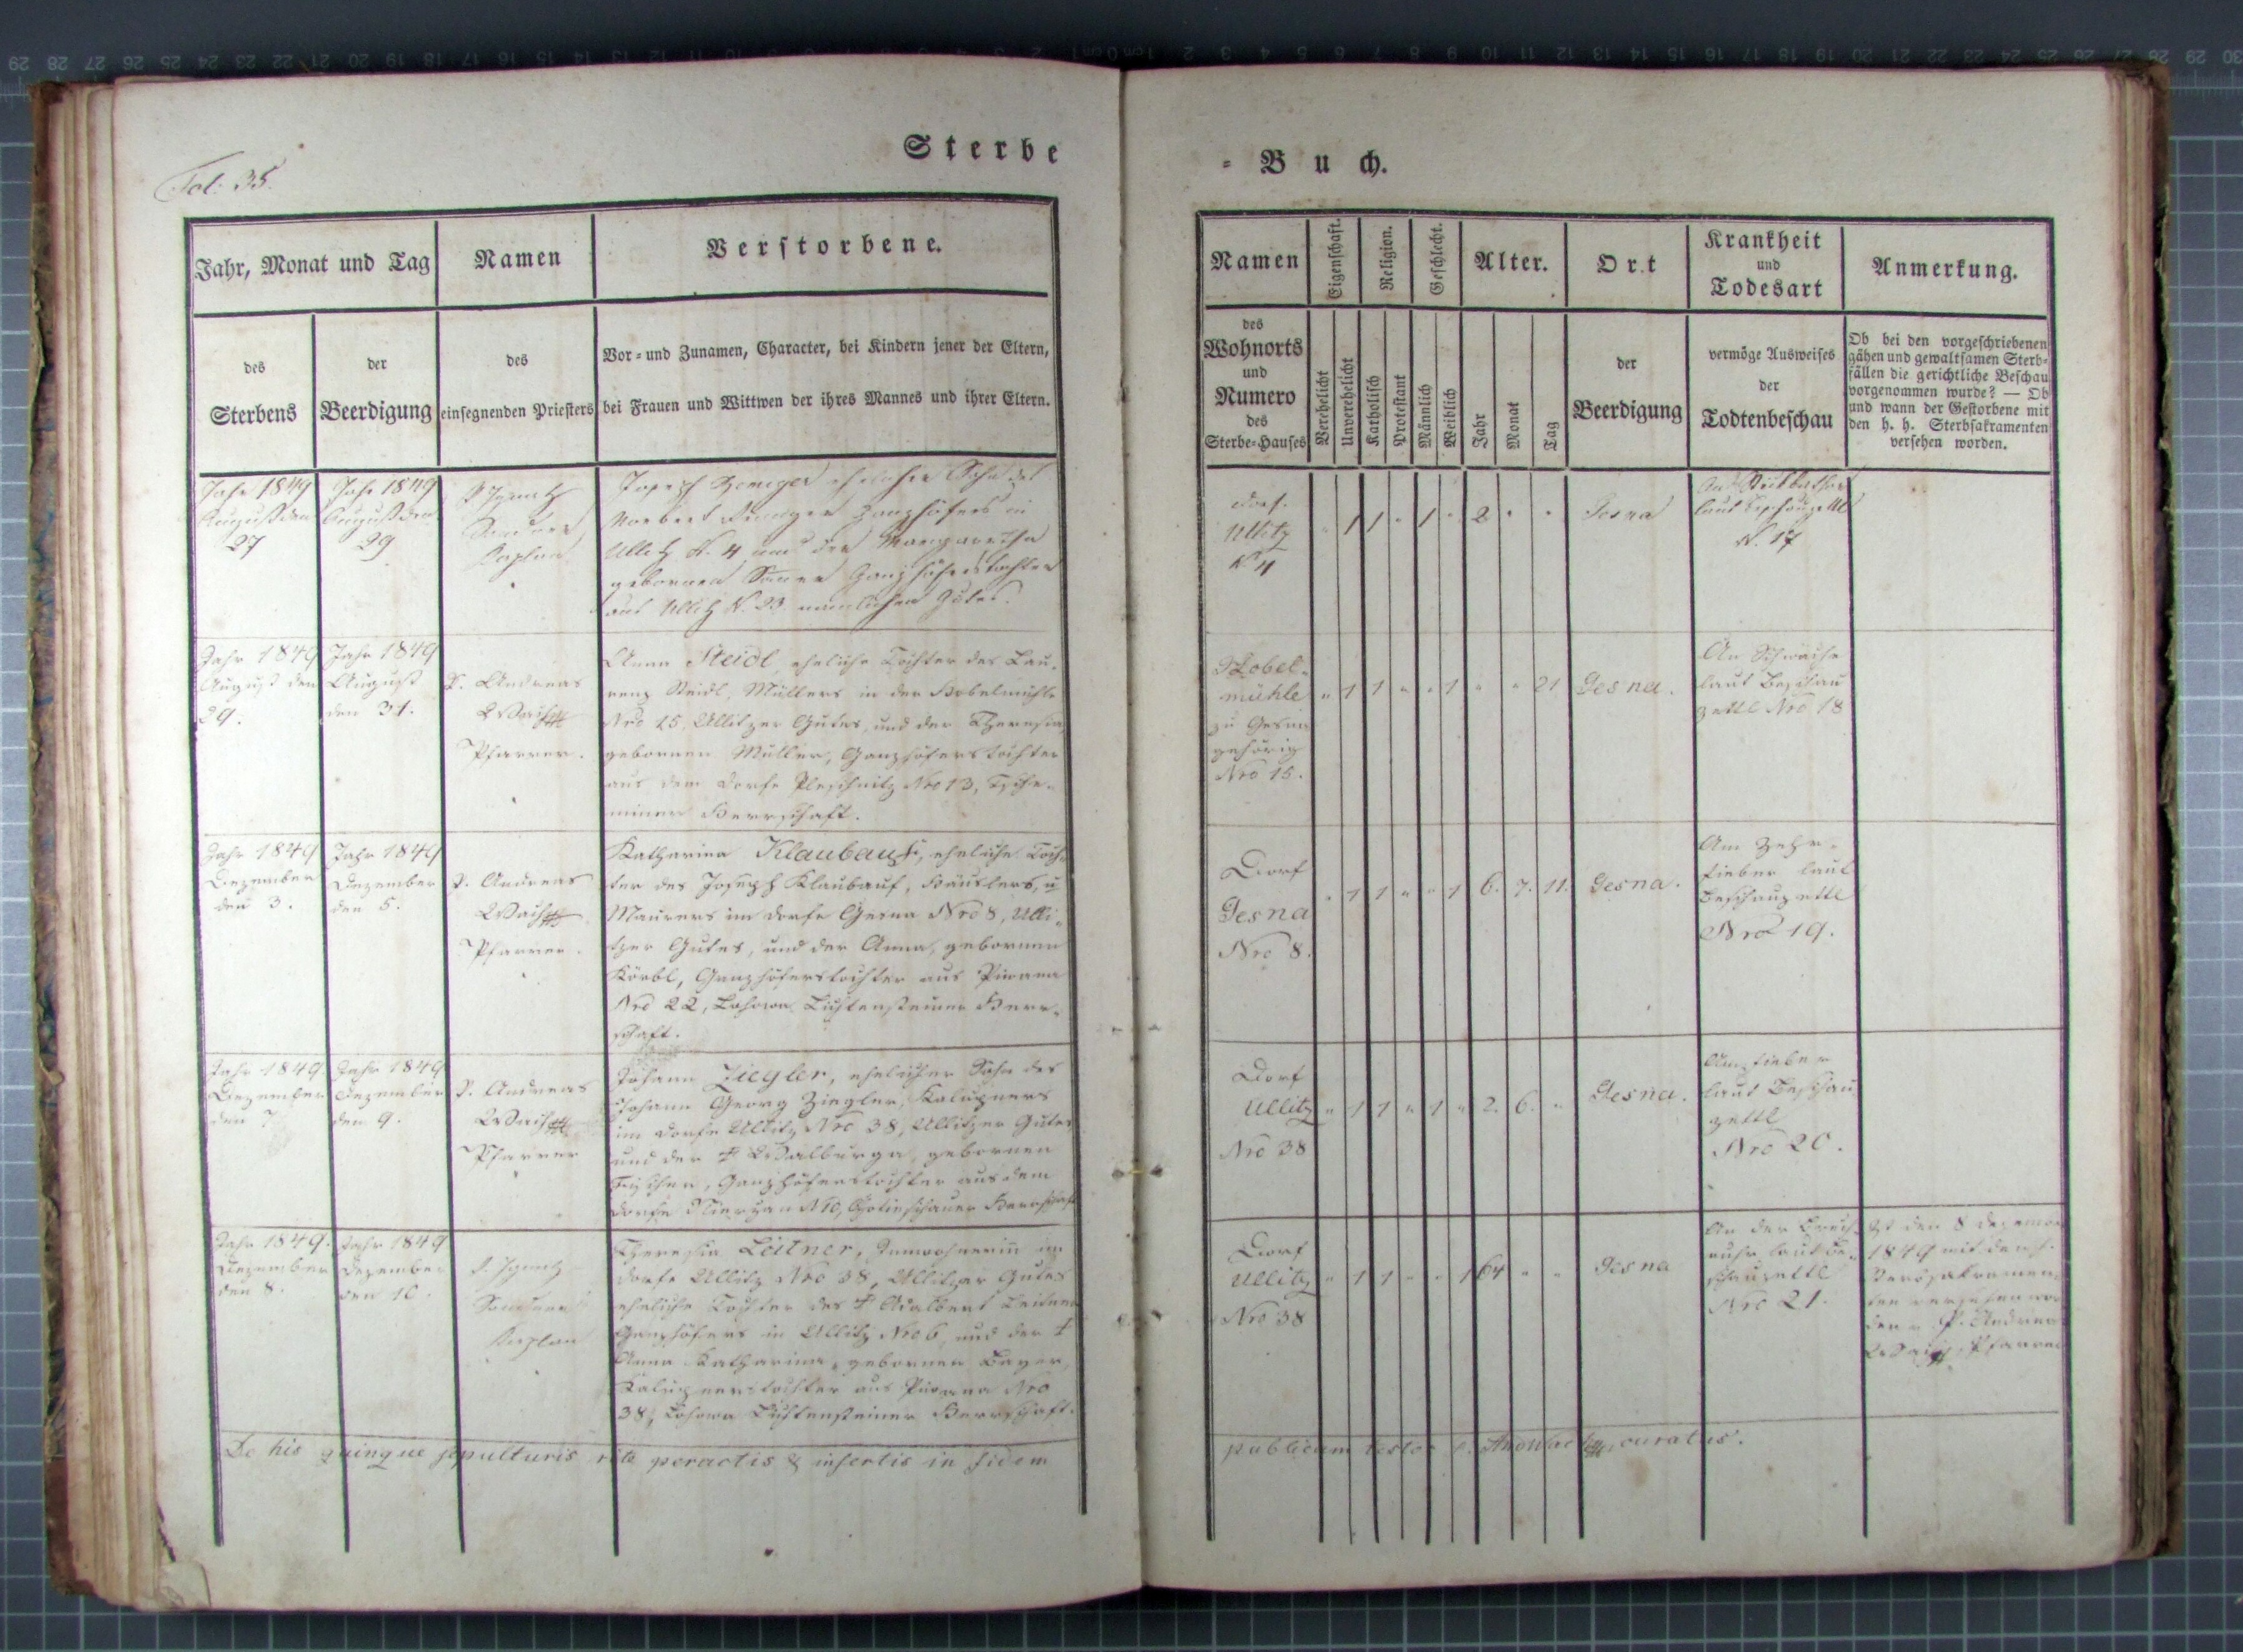 Fol: 35.
Sterbe
Jahr, Monat und Tag
Namen
Verstorbene.
des
Sterbens
der
Beerdigung
des
einsegnenden Priesters
Vor- und Zunamen, Character, bei Kindern jener der Eltern,
bei Frauen und Wittwen der ihres Mannes und ihrer Eltern.
Jahr 1849
August den
27
Jahr 1849
August den
29
P. Ignatz
Kaplan
Joseph ehelicher Sohn des
Norbert Ganzhöfers in
Ullitz N. 4 und der Margaretha
gebornen Ganzhöferstochter
aus Ullitz N. 23. nämlichen Gutes.
Jahr 1849
August den
29.
Jahr 1849
August
den 31.
P. Andreas
Pfarrer.
Anna Steidl eheliche Tochter des Lau-
renz Steidl, Müllers in der Hobelmühle
Nro 15, Ullitzer Gutes, und der Theresia
gebornen Müller, Ganzhöferstochter
aus dem Dorfe Pleschnitz Nro 13, Tsche-
miner Herrschaft.
Jahr 1849
Dezember
den 3.
Jahr 1849
Dezember
den 5.
P. Andreas
Pfarrer.
Katharina Klaubauf, eheliche Toch-
ter des Joseph Klaubauf, Häuslers, u
Maurers im Dorfe Gesna Nro 8, Ulli-
tzer Gutes, und der Anna, gebornen
Körbl, Ganzhöferstochter aus Piwana
Nro 22, Lichtensteiner Herr-
schaft.
Jahr 1849.
Dezember
den 7
Jahr 1849
Dezember
den 9.
P. Andreas
Pfarrer
Johann Ziegler, ehelicher Sohn des
Johann Georg Ziegler, Kalupners
im Dorfe Ullitz Nro 38, Ullitzer Gutes
und der † Walburga, gebornen
Fischer, Ganzhöferstochter aus dem
Dorfe N10, Herrschaft
Jahr 1849.
Dezember
den 8.
Jahr 1849
Dezember
den 10.
P. Ignatz
Kaplan
Theresia Leitner, Inwohnerin im
Dorfe Ullitz Nro 38, Ullitzer Gutes
eheliche Tochter des † Adalbert Leitner
Ganzhöfers in Ullitz Nro 6, und der †
Anna Katharina, gebornen Bayer,
Kalupnerstochter aus Piwana Nro
38, Lichtensteiner Herrschaft.
De his quinque sepulturis rite peractis & insertis in fidem
= Buch.
Namen
Eigenschaft.
Religion.
Geschlecht.
Alter.
Ort
Krankheit
und
Todesart
Anmerkung.
des
Wohnorts
und
Numero
des
Sterbe-Hauses
Verehelicht
Unverehelicht
Katholisch
Protestant
Männlich
Weiblich
Jahr
Monat
Tag
der
Beerdigung
vermöge Ausweises
der
Todtenbeschau
Ob bei den vorgeschriebenen
gähen und gewaltsamen Sterb-
fällen die gerichtliche Beschau
vorgenommen wurde? — Ob
und wann der Gestorbene mit
den h. h. Sterbsakramenten
versehen worden.
Dorf
Ullitz
N 4
" 1 1 " 1 " 2 " "
Gesna
laut Beschauzettl
N. 17
Hobel-
mühle
zu Gesna
gehörig
Nro 15.
" 1 1 " " 1 " " 21
Gesna.
An Schwäche
laut Beschau
zettl Nro 18
Dorf
Gesna
Nro 8.
" 1 1 " " 1 6. 7. 11.
Gesna.
Am Zehr-
fieber laut
Beschauzettl
Nro 19.
Dorf
Ullitz
Nro 38
" 1 1 " 1 " 2. 6. "
Gesna.
laut Beschau
zettl
Nro 20.
Dorf
Ullitz
Nro 38
" 1 1 " " 1 64 " "
Gesna
An der
ruhr laut Be-
schauzettl
Nro 21.
Ist den 8 Dezember
1849 mit den h.
Sterbsakramen-
ten versehen wor-
den v. P. Andreas
Pfarrer
publicam testor P. curatus.